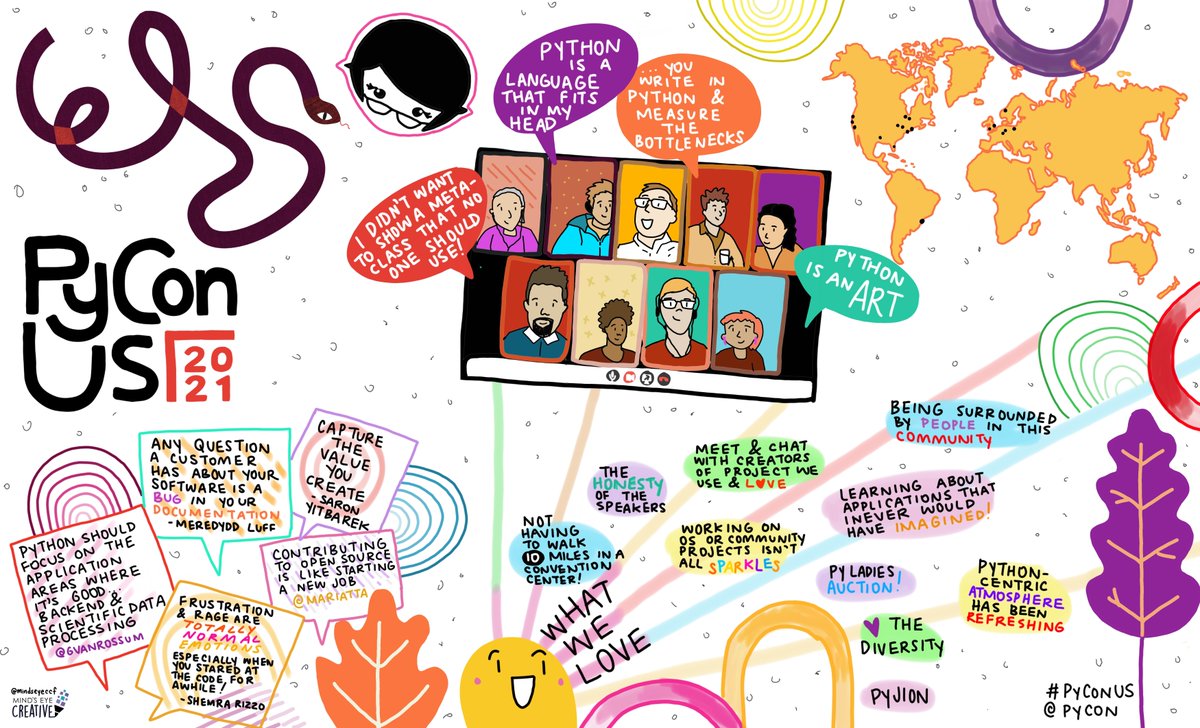 PyCon
US
2021
PYTHON
IS A
LANGUAGE
THAT FITS
IN MY
HEAD
...YOU
WRITE IN
PYTHON &
MEASURE
THE
BOTTLENECKS
I DIDN'T WANT
TO SHOW A META-
CLASS THAT NO
ONE SHOULD
USE!
PYTHON
IS AN ART
ANY QUESTION
A CUSTOMER
HAS ABOUT YOUR
SOFTWARE IS A
BUG IN YOUR
DOCUMENTATION
- MEREDYDD LUFF
CAPTURE
THE
VALUE
YOU
CREATE
- SARON
YITBAREK
PYTHON SHOULD
FOCUS ON THE
APPLICATION
AREAS WHERE
IT'S GOOD...
BACKEND &
SCIENTIFIC DATA
PROCESSING
@GVANROSSUM
CONTRIBUTING
TO OPEN SOURCE
IS LIKE STARTING
A NEW JOB
@MARIATTA
FRUSTRATION
& RAGE ARE
TOTALLY
NORMAL
EMOTIONS
ESPECIALLY WHEN
YOU STARED AT
THE CODE, FOR
AWHILE!
- SHEMRA RIZZO
WHAT
WE
LOVE
NOT
HAVING
TO WALK
10 MILES IN A
CONVENTION
CENTER!
THE
HONESTY
OF THE
SPEAKERS
MEET & CHAT
WITH CREATORS
OF PROJECT WE
USE & L♥VE
WORKING ON
OS OR COMMUNITY
PROJECTS ISN'T
ALL SPARKLES
BEING SURROUNDED
BY PEOPLE IN THIS
COMMUNITY
LEARNING ABOUT
APPLICATIONS THAT
I NEVER WOULD
HAVE IMAGINED!
PYLADIES
AUCTION!
PYTHON-
CENTRIC
ATMOSPHERE
HAS BEEN
REFRESHING
♥ THE
DIVERSITY
PYJION
@mindseyeccf
MIND'S EYE
CREATIVE
#PYCONUS
@PYCON